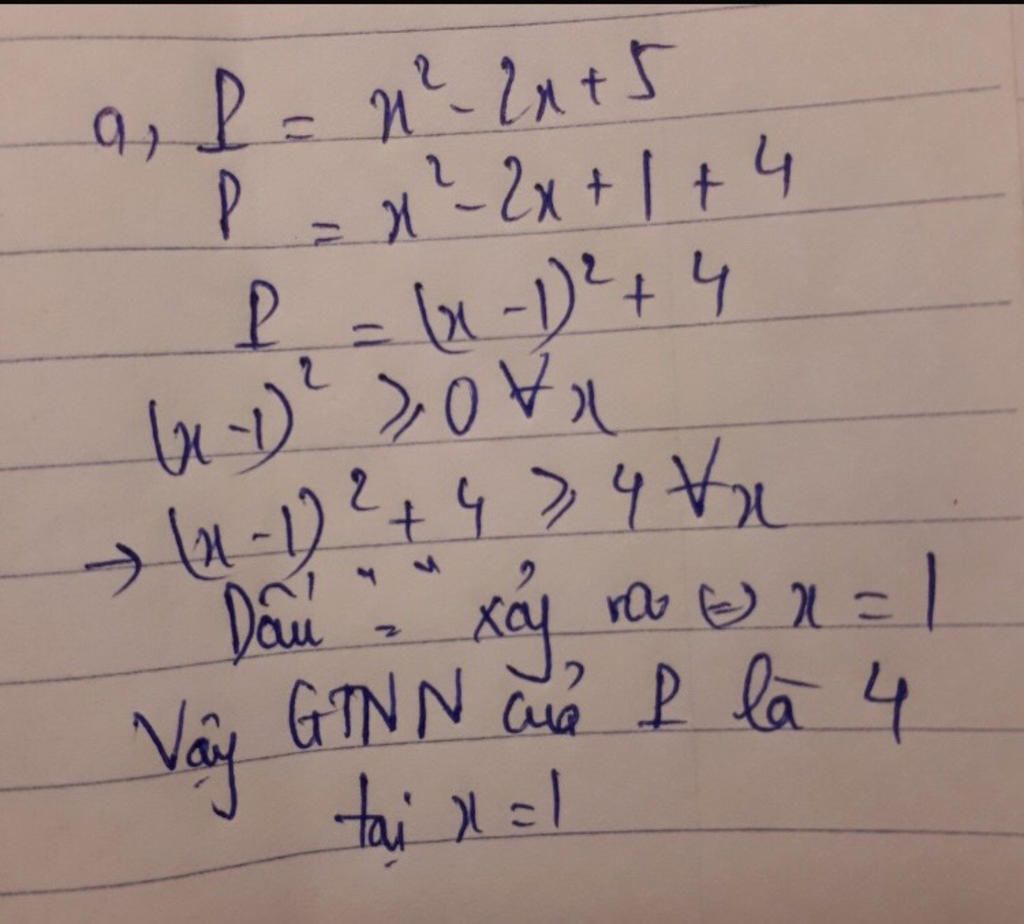 a, P = x² - 2x + 5
P = x² - 2x + 1 + 4
P = (x - 1)² + 4
(x - 1)² ⩾ 0 ∀x
→ (x - 1)² + 4 ⩾ 4 ∀x
Dấu "=" xảy ra ⇔ x = 1
Vậy GTNN của P là 4
tại x = 1